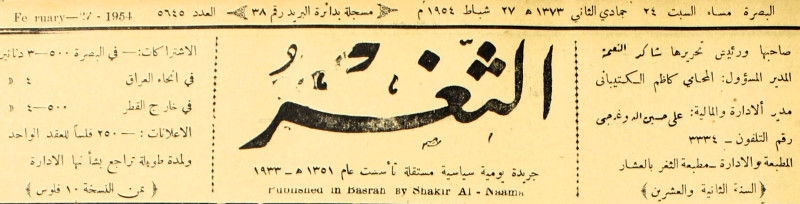 البصرة مساء السبت ٢٤ جمادي الثاني ١٣٧٣ ه ٢٧ شباط ١٩٥٤ م
مسجلة بدائرة البريد رقم ٣٨
العدد ٥٦٤٥
Fe ruary - 27 - 1954
صاحبها ورئيس تحريرها شاكر النعمة
المدير المسؤول: المحامي كاظم الكتيباني
مدير الادارة والمالية: علي حسين
رقم التلفون - ٣٣٣٤
المطبعة والادارة - مطبعة الثغر بالعشار
(السنة الثانية والعشرين)
الثغر
جريدة يومية سياسية مستقلة تأسست عام ١٣٥١ ه - ١٩٣٣
Published in Basrah By Shakir Al - Naama
الاشتراكات: - في البصرة ٥٠٠-٣ دنانير
في انحاء العراق ٤ «
في خارج القطر ٥٠٠-٤ «
الاعلانات: - ٢٥٠ فلساً للعقد الواحد
ولمدة طويلة تراجع بشأنها الادارة
(ثمن النسخة ١٠ فلوس)